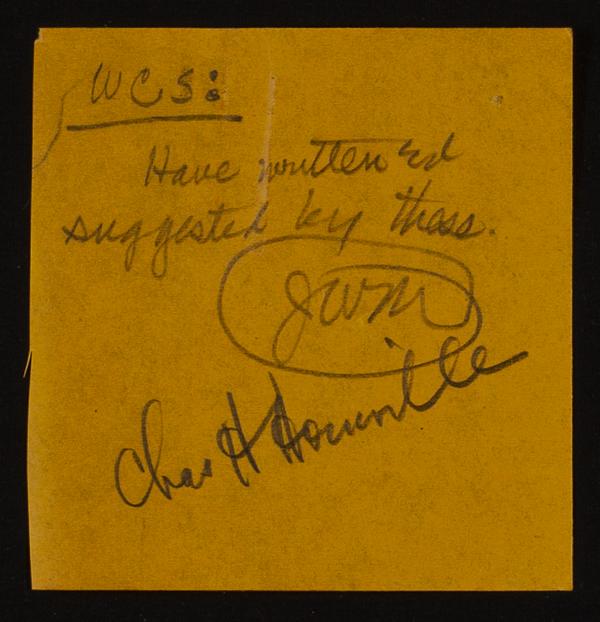 WCS:
Have written Ed
suggested by these.
JWM
Chas H